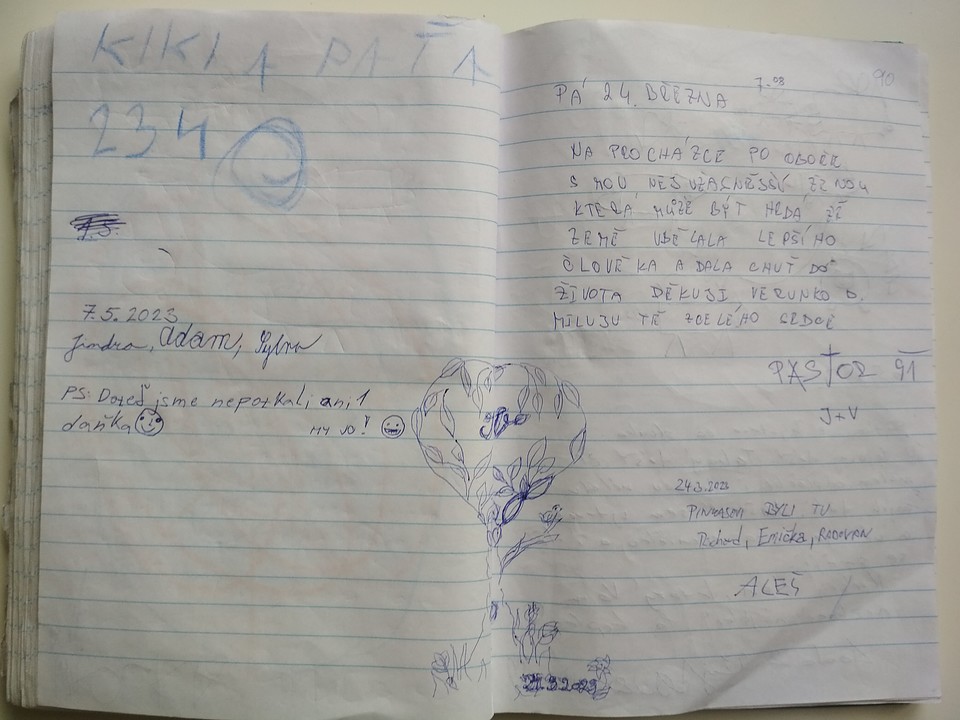 KIKI A PAŤA
234
7.5.2023
Jindra, Adam,
PS: Doteď jsme nepotkali ani 1
daňka
MY JO!
90
PÁ 24. BŘEZNA
NA PROCHÁZCE PO OBOŘE
S MOU NEJÚŽASNĚJŠÍ ŽENOU
KTERÁ MŮŽE BÝT HRDÁ ŽE
ZEMĚ UDĚLALA LEPŠÍHO
ČLOVĚKA A DALA CHUŤ DO
ŽIVOTA DĚKUJI VERUNKO D.
MILUJU TĚ ZCELÉHO SRDCE
PASTOR 91
J+V
24.3.2023
BYLI TU
Emička, RADOVAN
ALEŠ